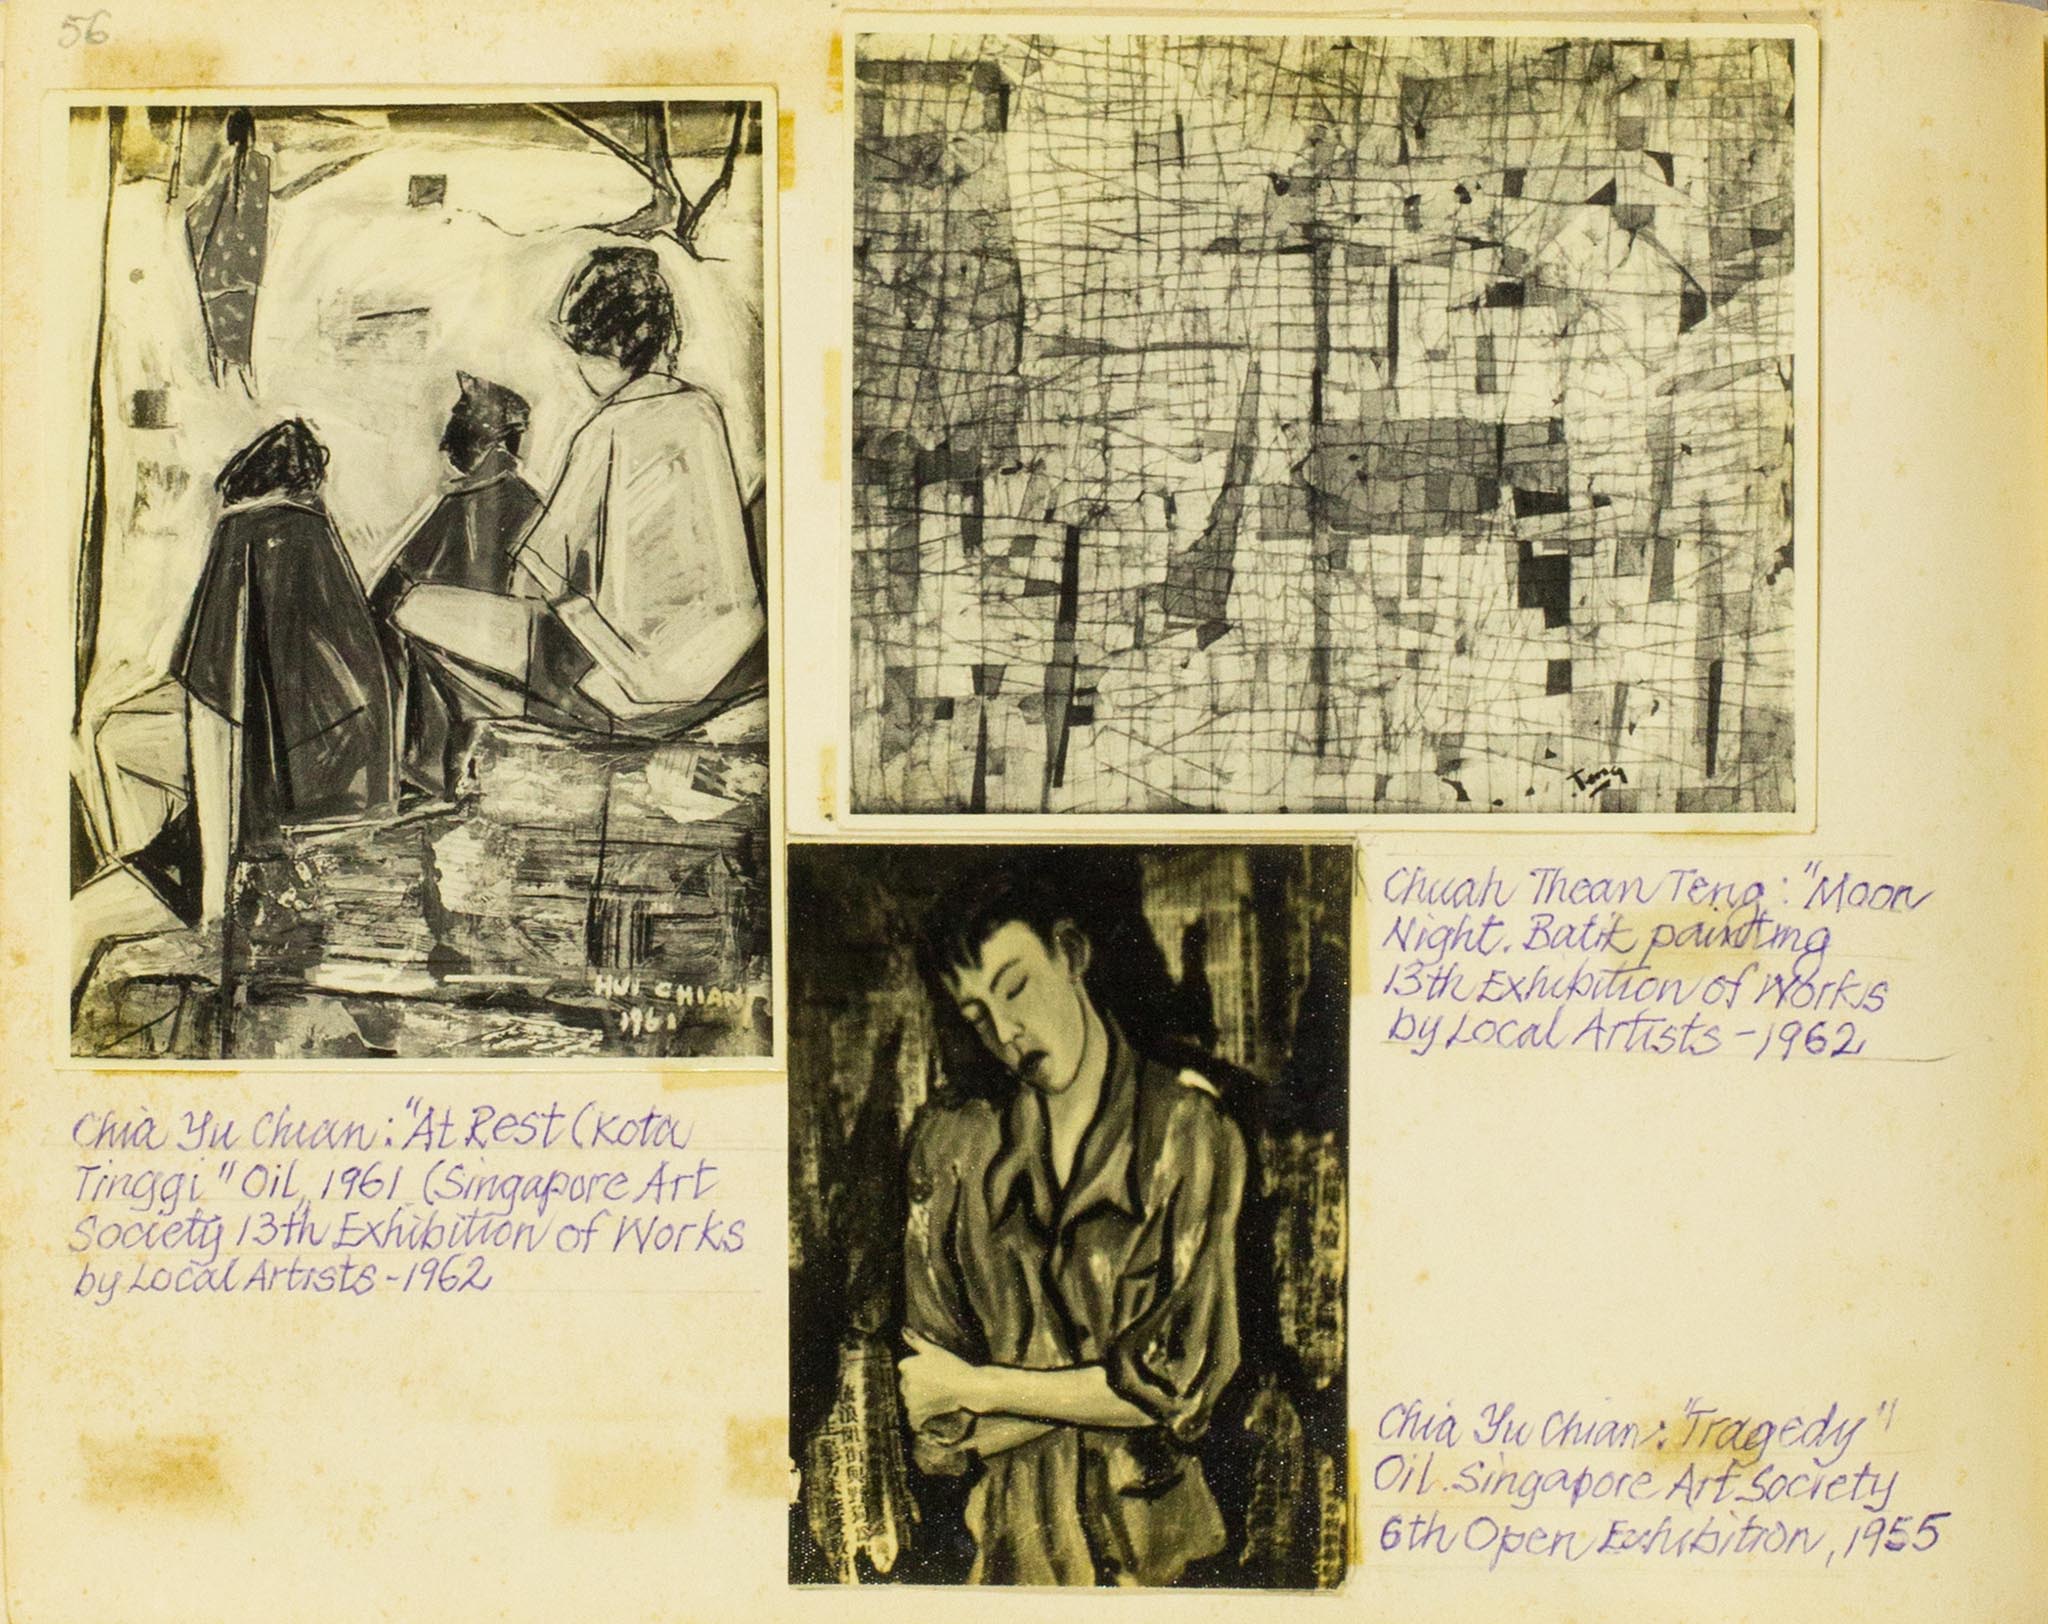 56
HUI CHIAN
1961
Teng
Chuah Thean Teng: "Moon
Night. Batik painting
13th Exhibition of Works
by Local Artists - 1962
Chia Yu Chian: "At Rest (Kota
Tinggi" Oil, 1961 (Singapore Art
Society 13th Exhibition of Works
by Local Artists - 1962
Chia Yu Chian: "Tragedy"
Oil. Singapore Art Society
6th Open Exhibition, 1955